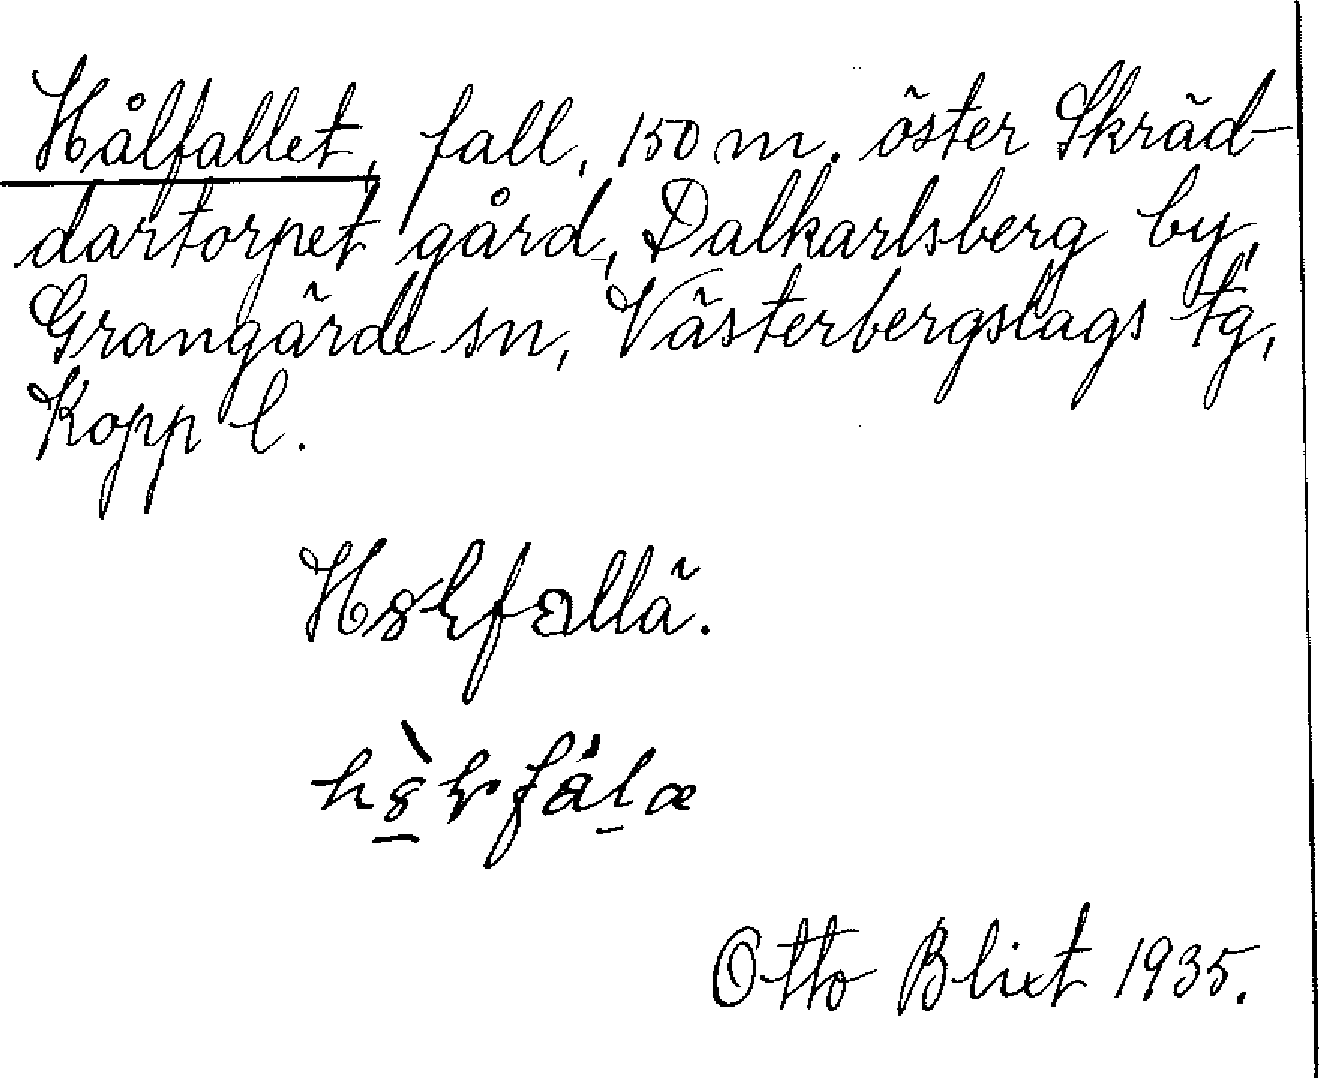 Hålfallet, fall, 150 m. öster Skräd-
dartorpet gård, Dalkarlsberg by,
Grangärde sn, Västerbergslags tg,
Kopp l.
Otto Blixt 1935.